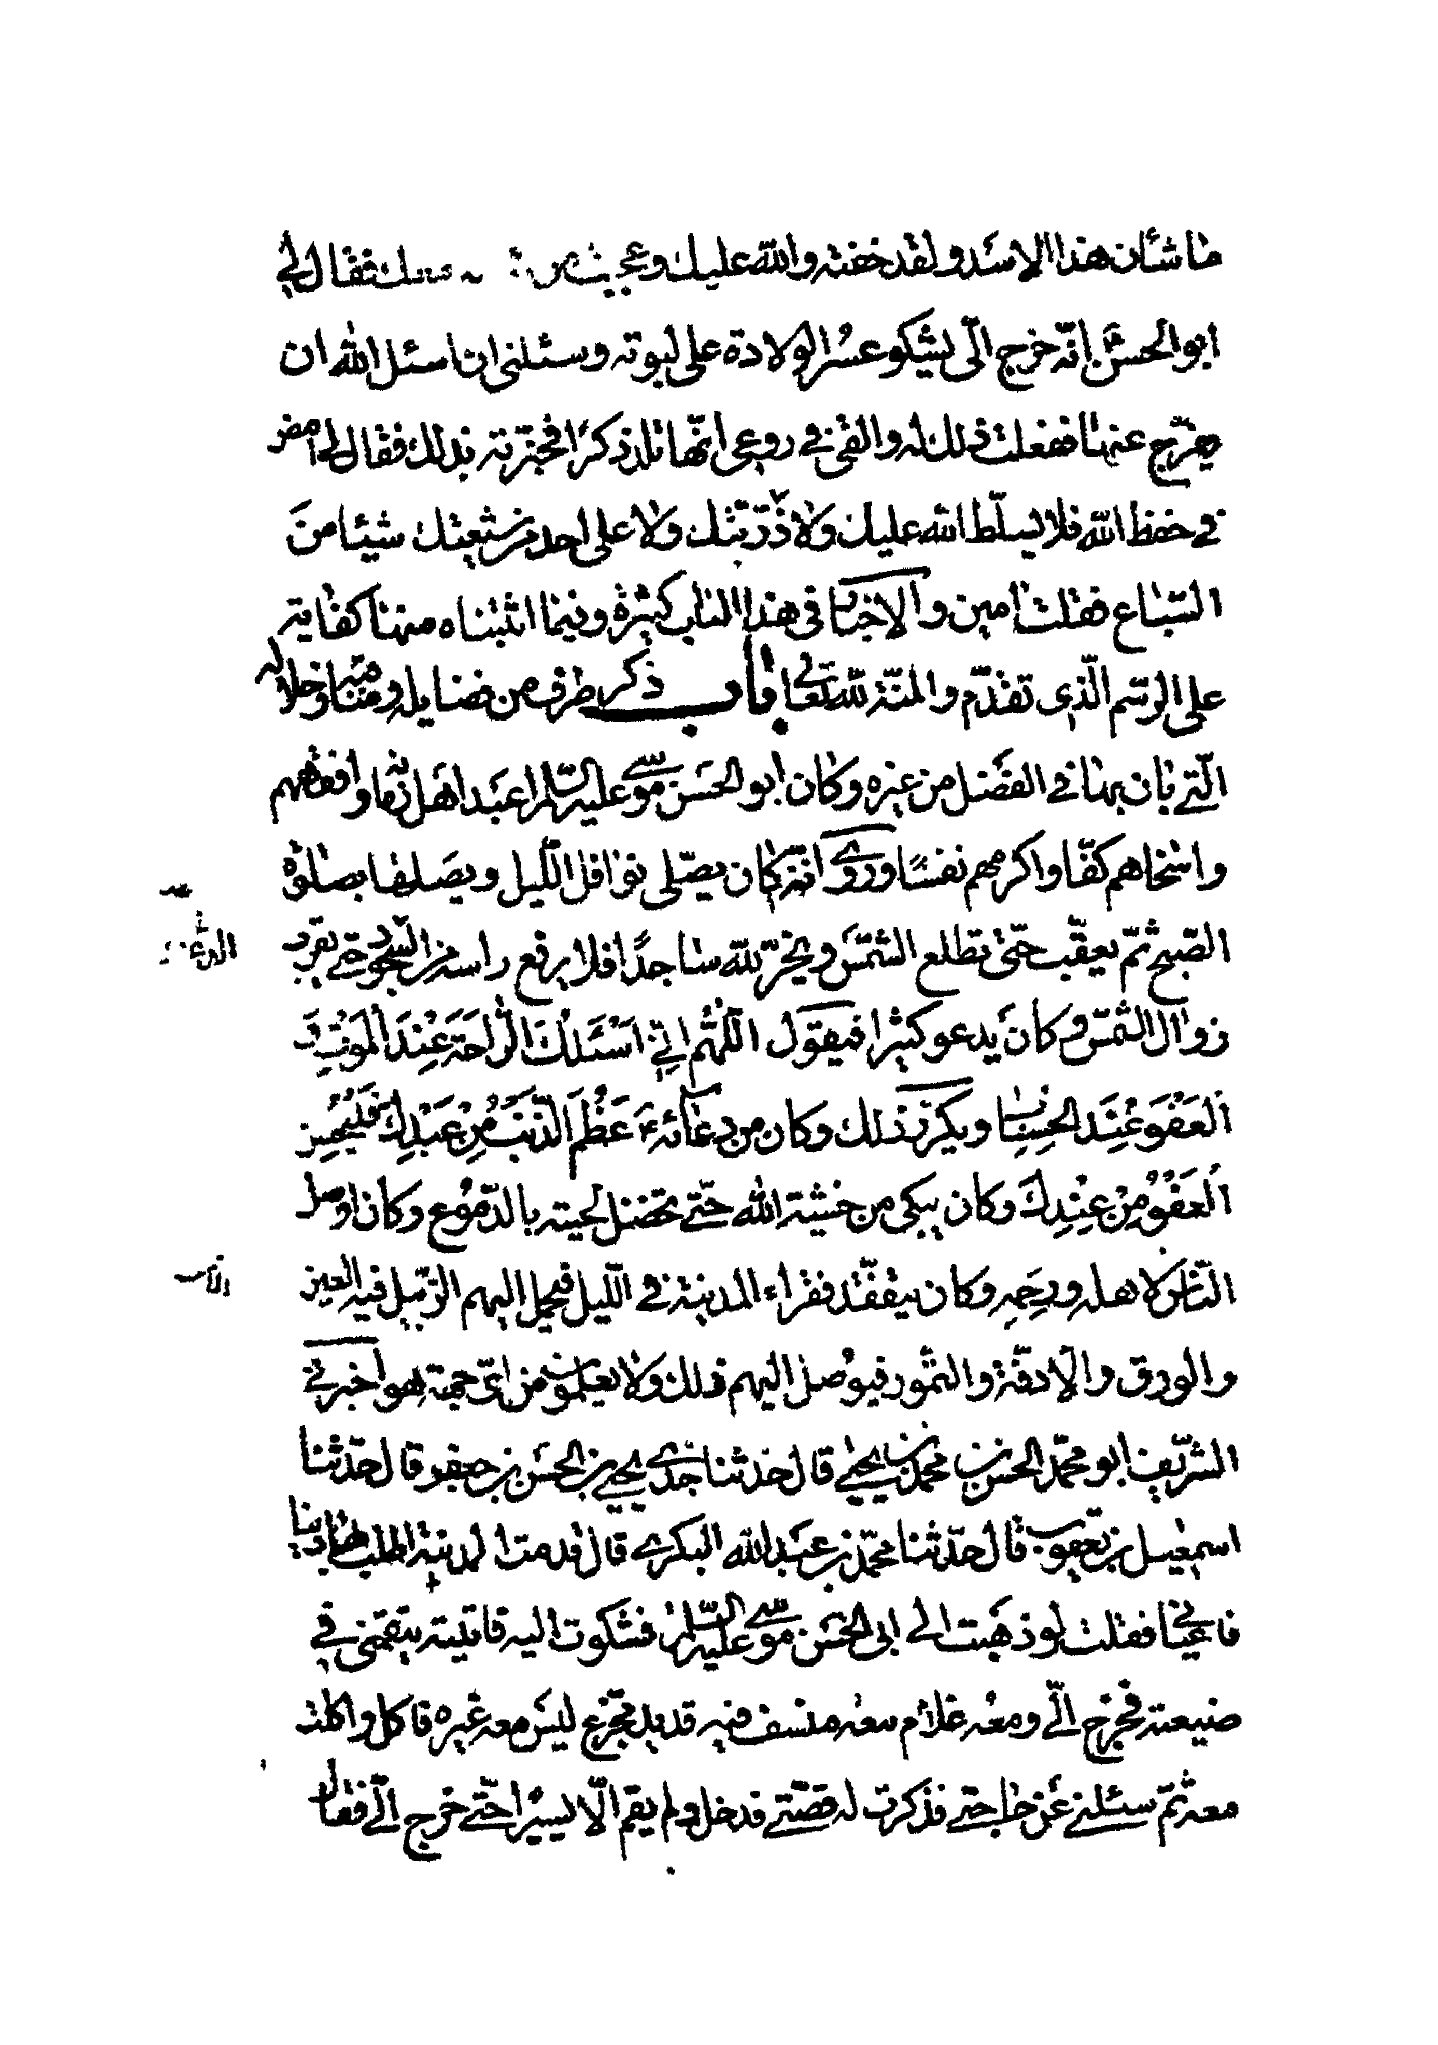 ما شأن هذا الاسد ولقد خفته والله عليك وعجبت من معك فقال لي
ابو الحسن انّه خرج الىّ يشكو عسر الولادة على لبوته وسئلنى ان اسئل الله ان
يفرّج عنها ففعلت ذلك له والقى في روعى انّها تلد ذكرًا فخبّرته بذلك فقال لى امض
في حفظ الله فلا يسلّط الله عليك ولا ذرّيّتك ولا على احد من شيعتك شيئا من
السّباع فقلت امين والاخبار فى هذا الباب كثيرة وفيما اثبتناه منها كفاية
على الرسم الّذى تقدّم والمنّة لله تعالى باب ذكر طرف من فضايله ومناقبه وخلاله
الّتي بان بها في الفضل من غيره وكان ابو الحسن موسى عليه السّلم اعبد اهل زمانه وافقههم
واسخاهم كفّا واكرمهم نفسًا وروى انّه كان يصلّى نوافل اللّيل ويصلها بصلوة
الصّبح ثمّ يعقّب حتّى تطلع الشّمس ويخرّ لله ساجدًا فلا يرفع راسه من السّجود حتّى يقرب
زوال الشّمس وكان يدعو كثيرا فيقول اللّهمّ انّي اسْئَلُكَ الرّاحَةَ عِنْدَ الْمَوْتِ وَ
الْعَفْوَ عِنْدَ الحِسابِ ويكرّر ذلك وكان من دعآئه عَظُمَ الذّنْبُ مِنْ عَبْدِكَ فَلْيَحْسُنِ
الْعَفْوُ مِنْ عِنْدِكَ وكان يبكى من خشية الله حتّى تخضل لحيته بالدّموع وكان اوصل
النّاس لاهله ورحمه وكان يتفقّد فقراء المدينة في اللّيل فيحمل اليهم الزّبيل فيه العين
والورق والادقّة والتّمور فيوصل اليهم ذلك ولا يعلمون من اىّ جهة هو اخبرني
الشّريف ابو محمّد الحسن بن محمّد بن يحيى قال حدثنا جدّى يحيى بن الحسن بن جعفر قال حدّثنا
اسمعيل بن يعقوب قال حدّثنا محمّد بن عبد الله البكري قال قدمت المدينة اطلب بها دينا
فاعيانى فقلت لو ذهبت الى ابى الحسن موسى عليه السّلم فشكوت اليه فاتيته بنقمى في
ضيعته فخرج الىّ ومعه غلام معه منسف فيه قديد مجزّع ليس معه غيره فاكل واكلت
معه ثمّ سئلنى عن حاجتى فذكرت له قصّتى فدخل ولم يقم الّا يسيرًا حتّى خرج الىّ فقال